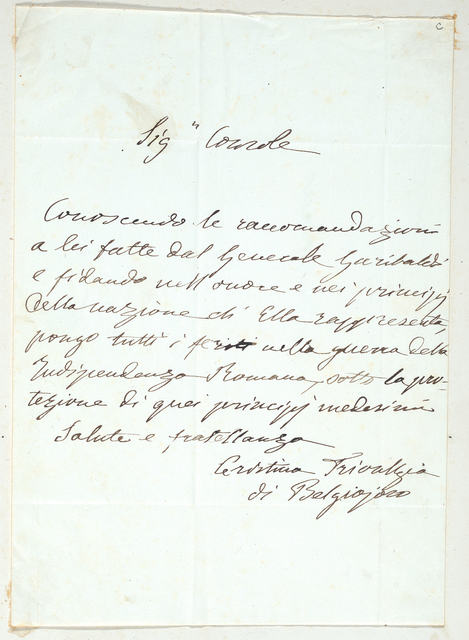 C
Sigr Console
Conoscendo le raccomandazioni
a lei fatte dal Generale Garibaldi
e fidando nell'onore e nei principj
della nazione ch'Ella rappresenta,
pongo tutti i feriti nella guerra della
Indipendenza Romana, sotto la pro-
tezione di quei principj medesimi
Salute e fratellanza
Cristina Trivulzia
di Belgiojoso